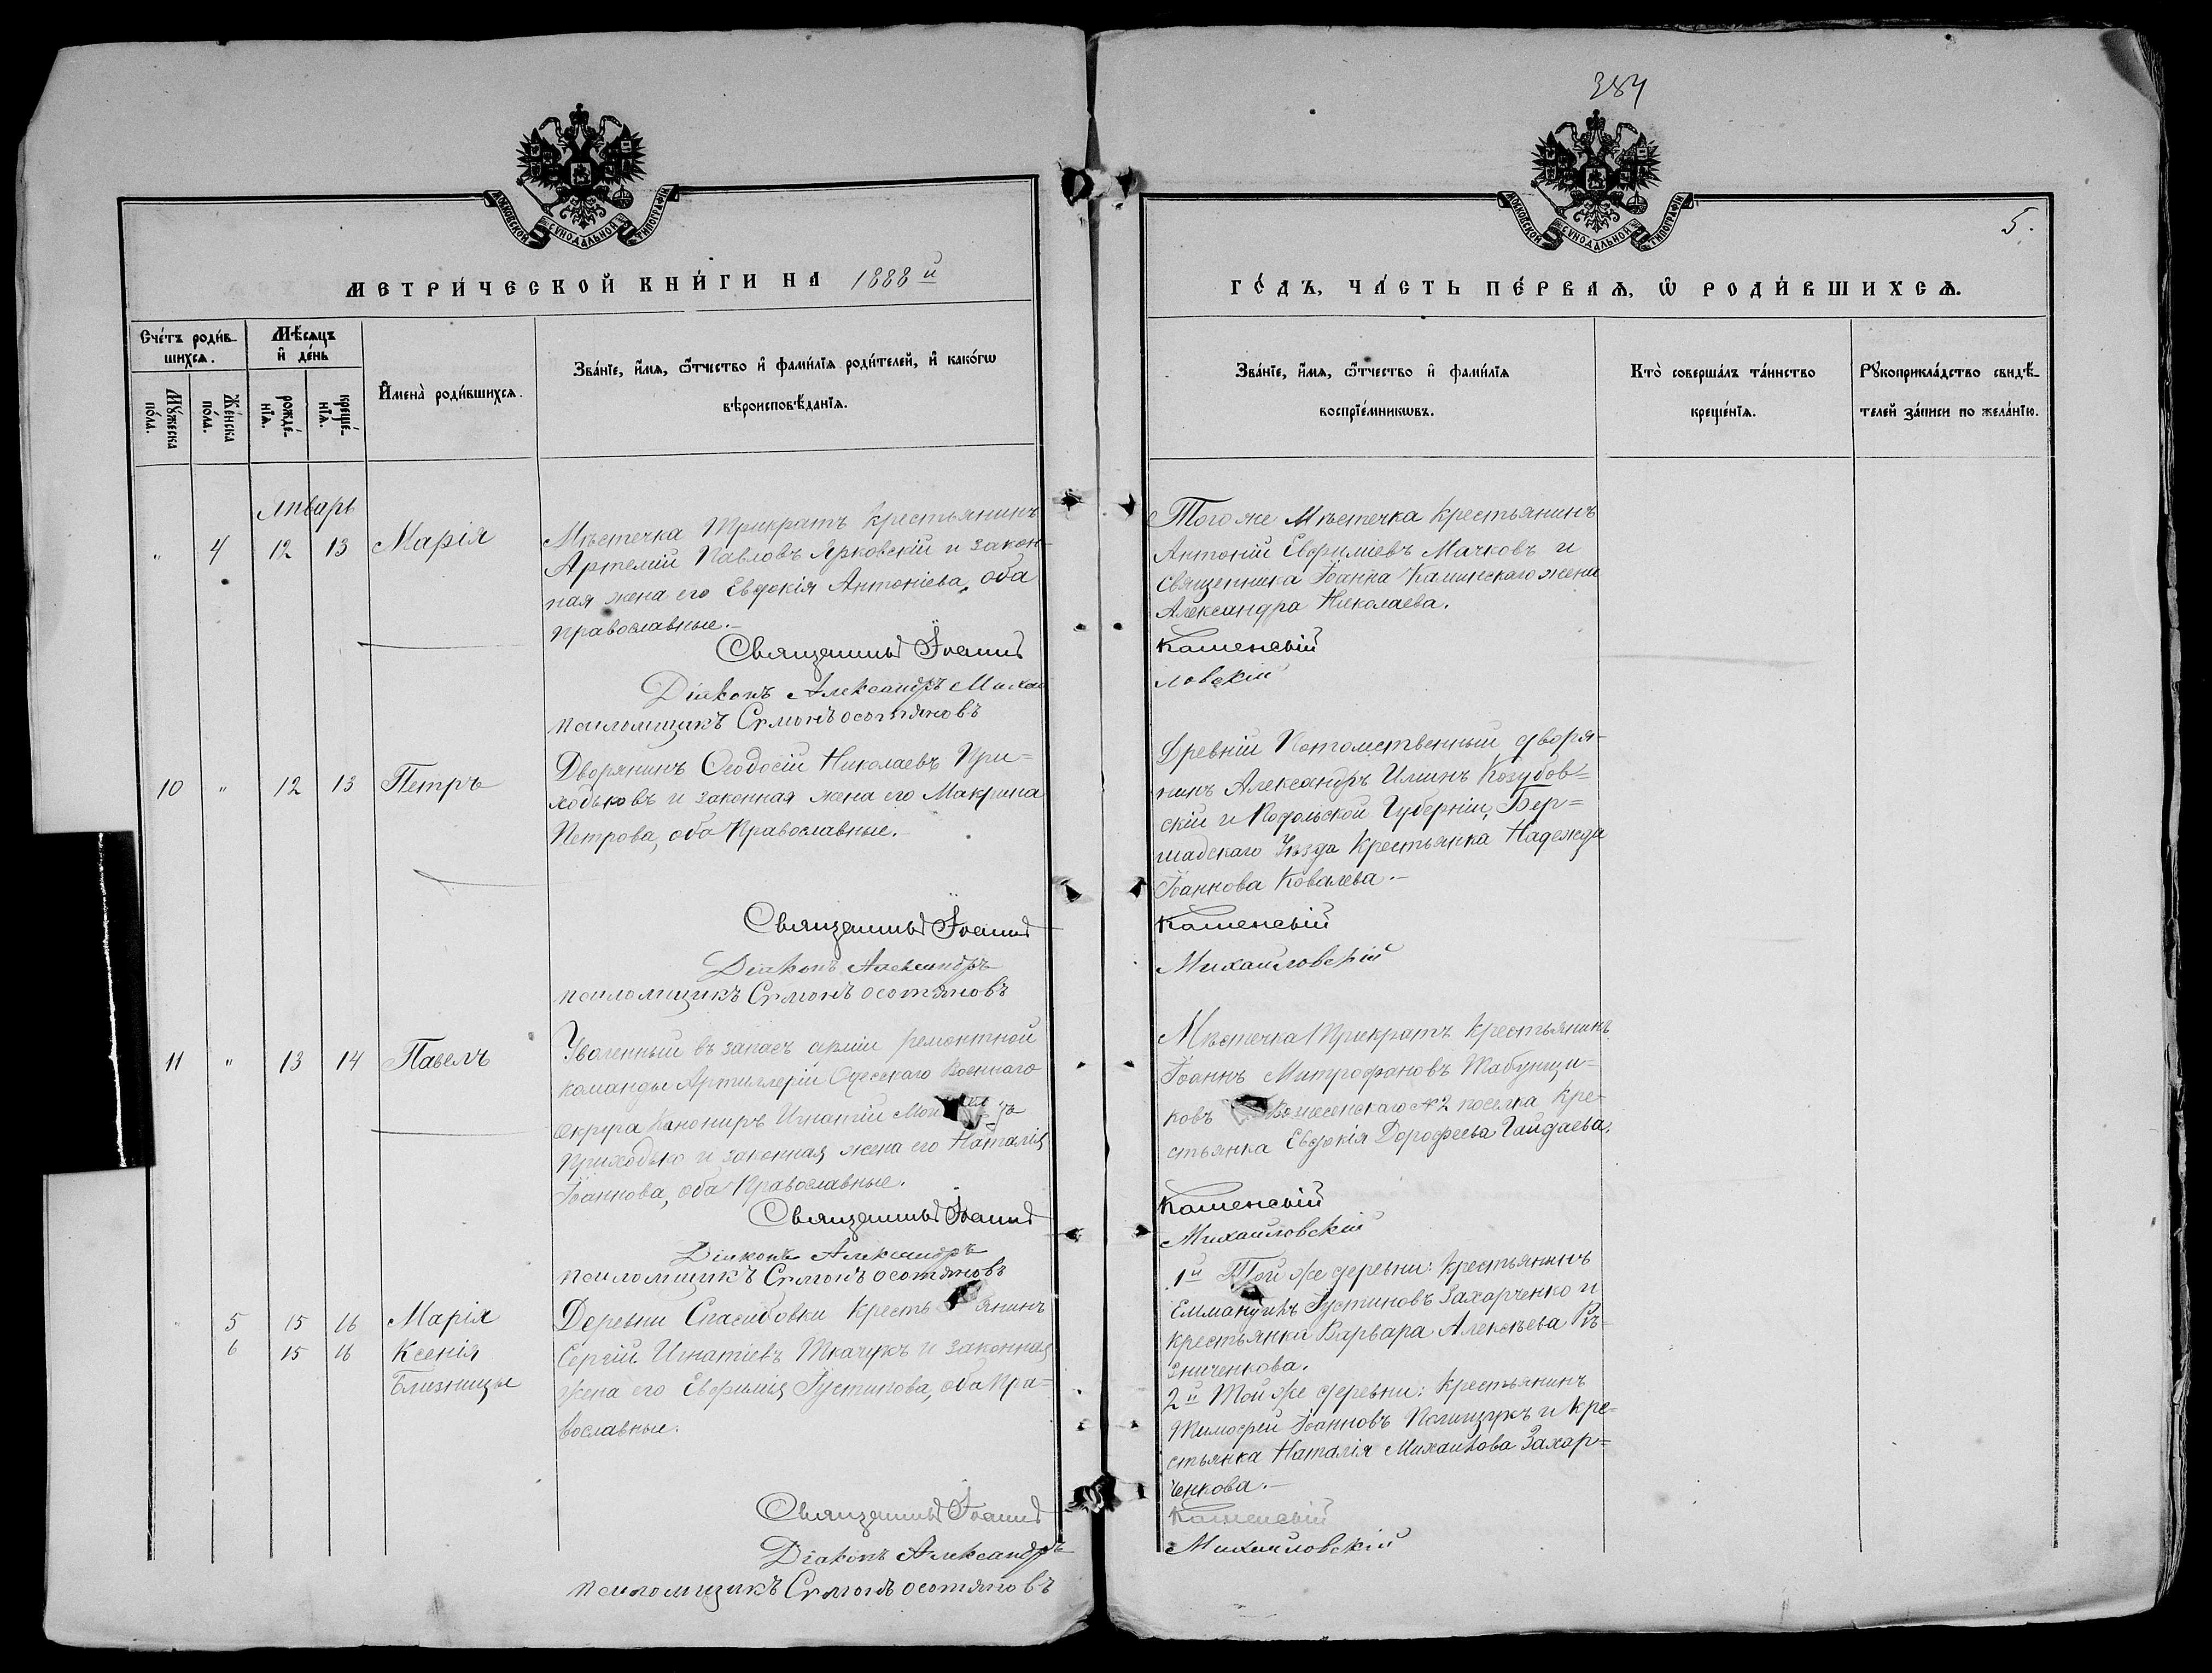 384
МОСКОВСКОЙ СѴНОДАЛЬНОЙ ТИПОГРАФІИ
МЕТРИ́ЧЕСКОЙ КНИ́ГИ НА 1888 й
Сче́тъ роди́вшихсѧ.
Мѣ́сяцъ и҆ де́нь
Мꙋ́жеска по́ла.
Же́нска по́ла.
рожде́нїѧ.
креще́нїѧ.
И҆мена̀ роди́вшихсѧ.
Зва́нїе, и҆́мѧ, ѻ҆́тчество и҆ фами́лїѧ роди́телей, и҆ како́гѡ
вѣроисповѣ́данїѧ.
Январь
" 4 12 13 Марія
Мѣстечка Трикратъ крестьянинъ
Артемій Павловъ Ярковскій и закон-
ная жена его Евдокія Антоніева, оба
православные.-
Священникъ Іоаннъ
Діаконъ Александръ Михай
псаломщикъ Симонъ
10 " 12 13 Петръ
Дворянинъ Ѳеодосій Николаевъ При=
ходьковъ и законная жена его Макрина
Петрова, оба Православные.-
Священникъ Іоаннъ
Діаконъ Александръ
псаломщикъ Симонъ
11 " 13 14 Павелъ
Уволенный въ запасъ арміи ремонтной
команды Артиллеріи Одесскаго Военнаго
Округа Канониръ Игнатій
Приходько и законная жена его Наталія
Іоаннова, оба Православные.
Священникъ Іоаннъ
Діаконъ Александръ
псаломщикъ Симонъ
5 15 16 Марія
6 15 16 Ксенія
Близницы
Деревни Спасибовки кресть янинъ
Сергій Игнатіевъ Ткачукъ и законная
жена его Евфимія Іустинова, оба Пра=
вославные.
Священникъ Іоаннъ
Діаконъ Александръ
псаломщикъ Симонъ
МОСКОВСКОЙ СѴНОДАЛЬНОЙ ТИПОГРАФІИ
5.
ГО́ДЪ, ЧА́СТЬ ПЕ́РВАѦ, Ѡ҆ РОДИ́ВШИХСѦ.
Зва́нїе, и҆́мѧ, ѻ҆́тчество и҆ фами́лїѧ
воспрїе́мникѡвъ.
Кто̀ соверша́лъ та́инство
креще́нїѧ.
Рꙋкоприкла́дство свидѣ́-
телей за́писи по жела́нїю.
Того же Мѣстечка крестьянинъ
Антоній Евфиміевъ Мачковъ и
священника Іоанна Каминскаго жена
Александра Николаева.
Каменскій
ловскій
Древній Потомственный дворя-
нинъ Александръ Ильинъ Козубов=
скій и Подольской Губерніи, Бер=
шадскаго Уѣзда Крестьянка Надежда
Іоаннова Ковалева.-
Каменскій
Михайловскій
Мѣстечка Трикратъ крестьянинъ
Іоаннъ Митрофановъ Табунщи=
ковъ Вознесенскаго №2 поселка кре-
стьянка Евдокія Дорофеева Гайдаева.
Каменскій
Михайловскій
1й Той же деревни: крестьянинъ
Еммануилъ Іустиновъ Захарченко и
крестьянка Варвара Алексѣева Рѣ-
зниченкова.
2й Той же деревни: крестьянинъ
Тимофей Іоанновъ Полищукъ и кре-
стьянка Наталія Михайлова Захар=
ченкова.-
Каменскій
Михайловскій